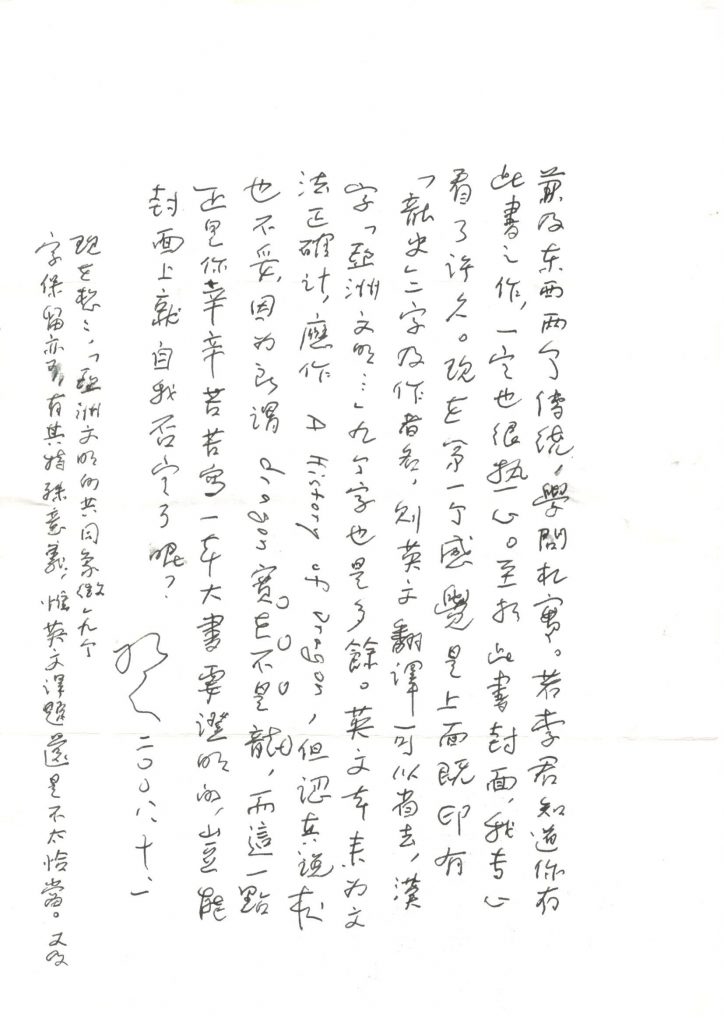 兼及东西两个傳统，學問扎實。若李君知道你有
此書之作，一定也很热心。至於此書封面，我专心
看了许久。现在第一个感覺是上面既印有
「龍史」二字及作者名，则英文翻譯可以省去，漢
字「亞洲文明…」九个字也是多餘。英文本来为文
法正確计，應作 A History of Dragon，但認真说来
也不妥，因为所谓 dragon 實在不是龍，而這一點
正是你辛辛苦苦寫一本大書要證明的，豈能
封面上就自我否定了呢？
二〇〇八、十、一
现在想想，「亞洲文明的共同象徵」九个
字保留亦可，有其特殊意義，惟英文译題還是不太恰當。又及